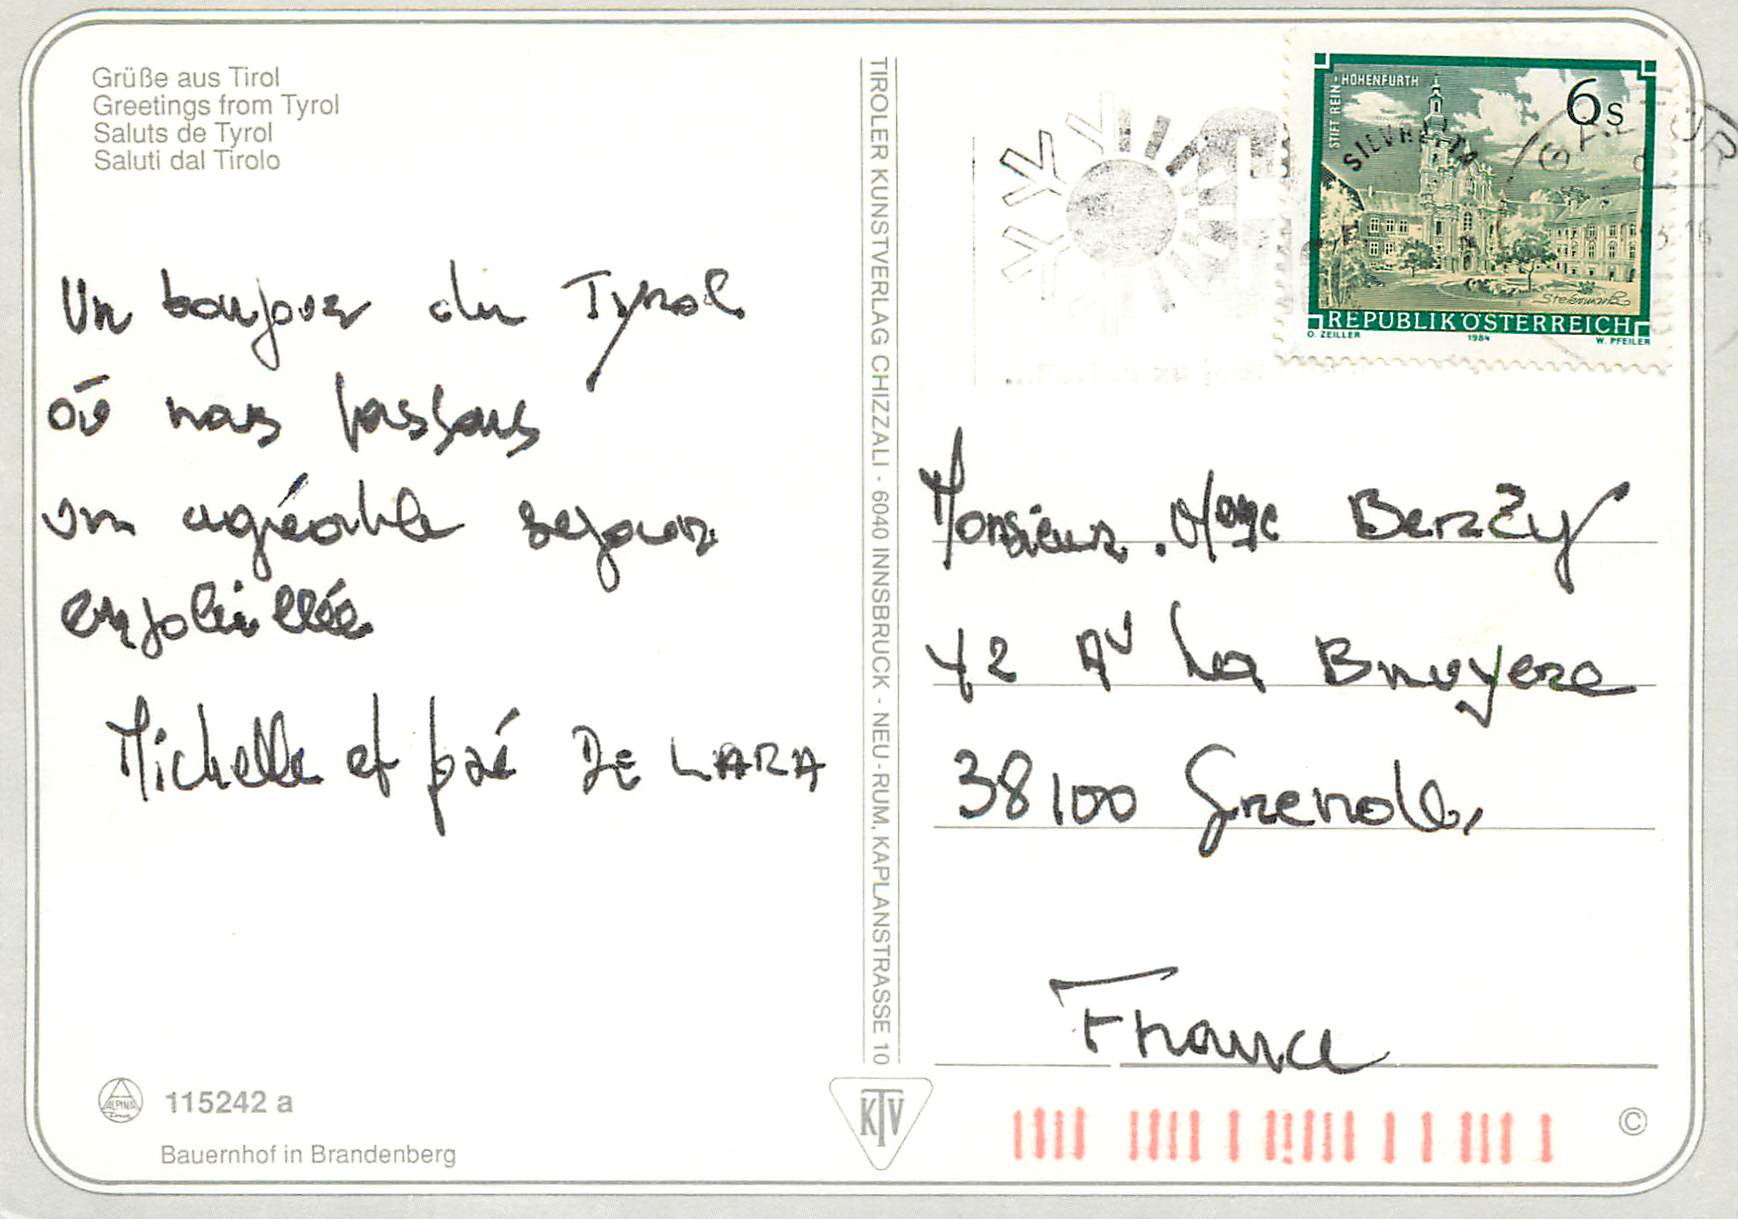 Grüße aus Tirol
Greetings from Tyrol
Saluts de Tyrol
Saluti dal Tirolo
Un bonjour du Tyrol
où nous passons
un agréable sejour
ensoleillée
Michelle et DE LARA
115242 a
Bauernhof in Brandenberg
TIROLER KUNSTVERLAG CHIZZALI - 6040 INNSBRUCK - NEU-RUM, KAPLANSTRASSE 10
KTV
STIFT REIN-HOHENFURTH
6s
SILVRETTA
GALTÜR
Steiermark
REPUBLIK ÖSTERREICH
O. ZEILLER 1984 W. PFEILER
Monsieur Berzy
42 AV La Bruyere
38100 Grenoble
France
©